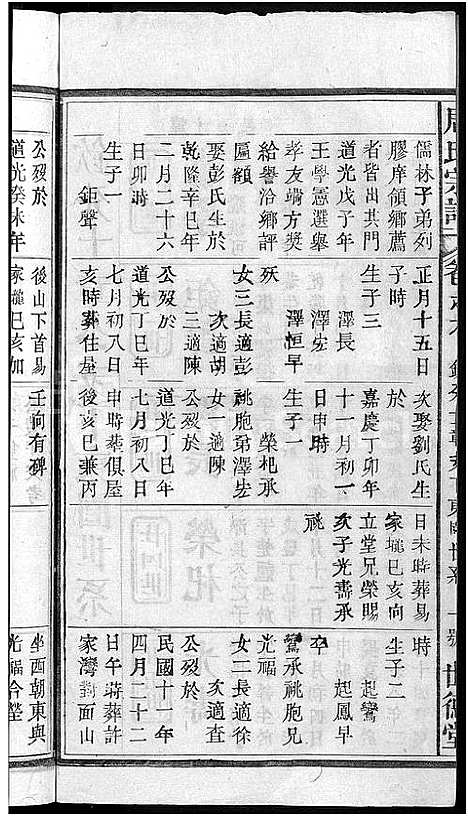 周氏宗譜
世德堂
儒林子弟列
膠庠領鄉薦
者皆出其門
道光戊子年
王學憲選舉
孝友端方獎
給譽洽鄉評
匾額
娶彭氏生於
乾隆辛巳年
二月二十六
日卯時
生子一
鉅聲
正月十五日
子時
生子三
澤長
澤宏
澤恒早
殀
女三長適彭
次適胡
三適陳
公歿於
道光丁巳年
七月初八日
亥時葬住屋
次娶劉氏生
於
嘉慶丁卯年
十一月初一
日申時
生子一
榮杞承
祧胞弟澤宏
女一適陳
公歿於
道光丁巳年
七月初八日
申時葬俱屋
後亥巳兼丙
日未時葬易
家壠巳亥向
立堂兄榮賜
次子光壽承
祧
時
生子二
起鸞
起鳳早
卒
鸞承祧胞兄
光福
女二長適徐
次適查
公歿於
民國十一年
四月二十二
日午時葬許
家灣對面山
公歿於
道光癸未年
後山下首易
家壠巳亥加
壬向有碑
坐西朝東與
光福合塋